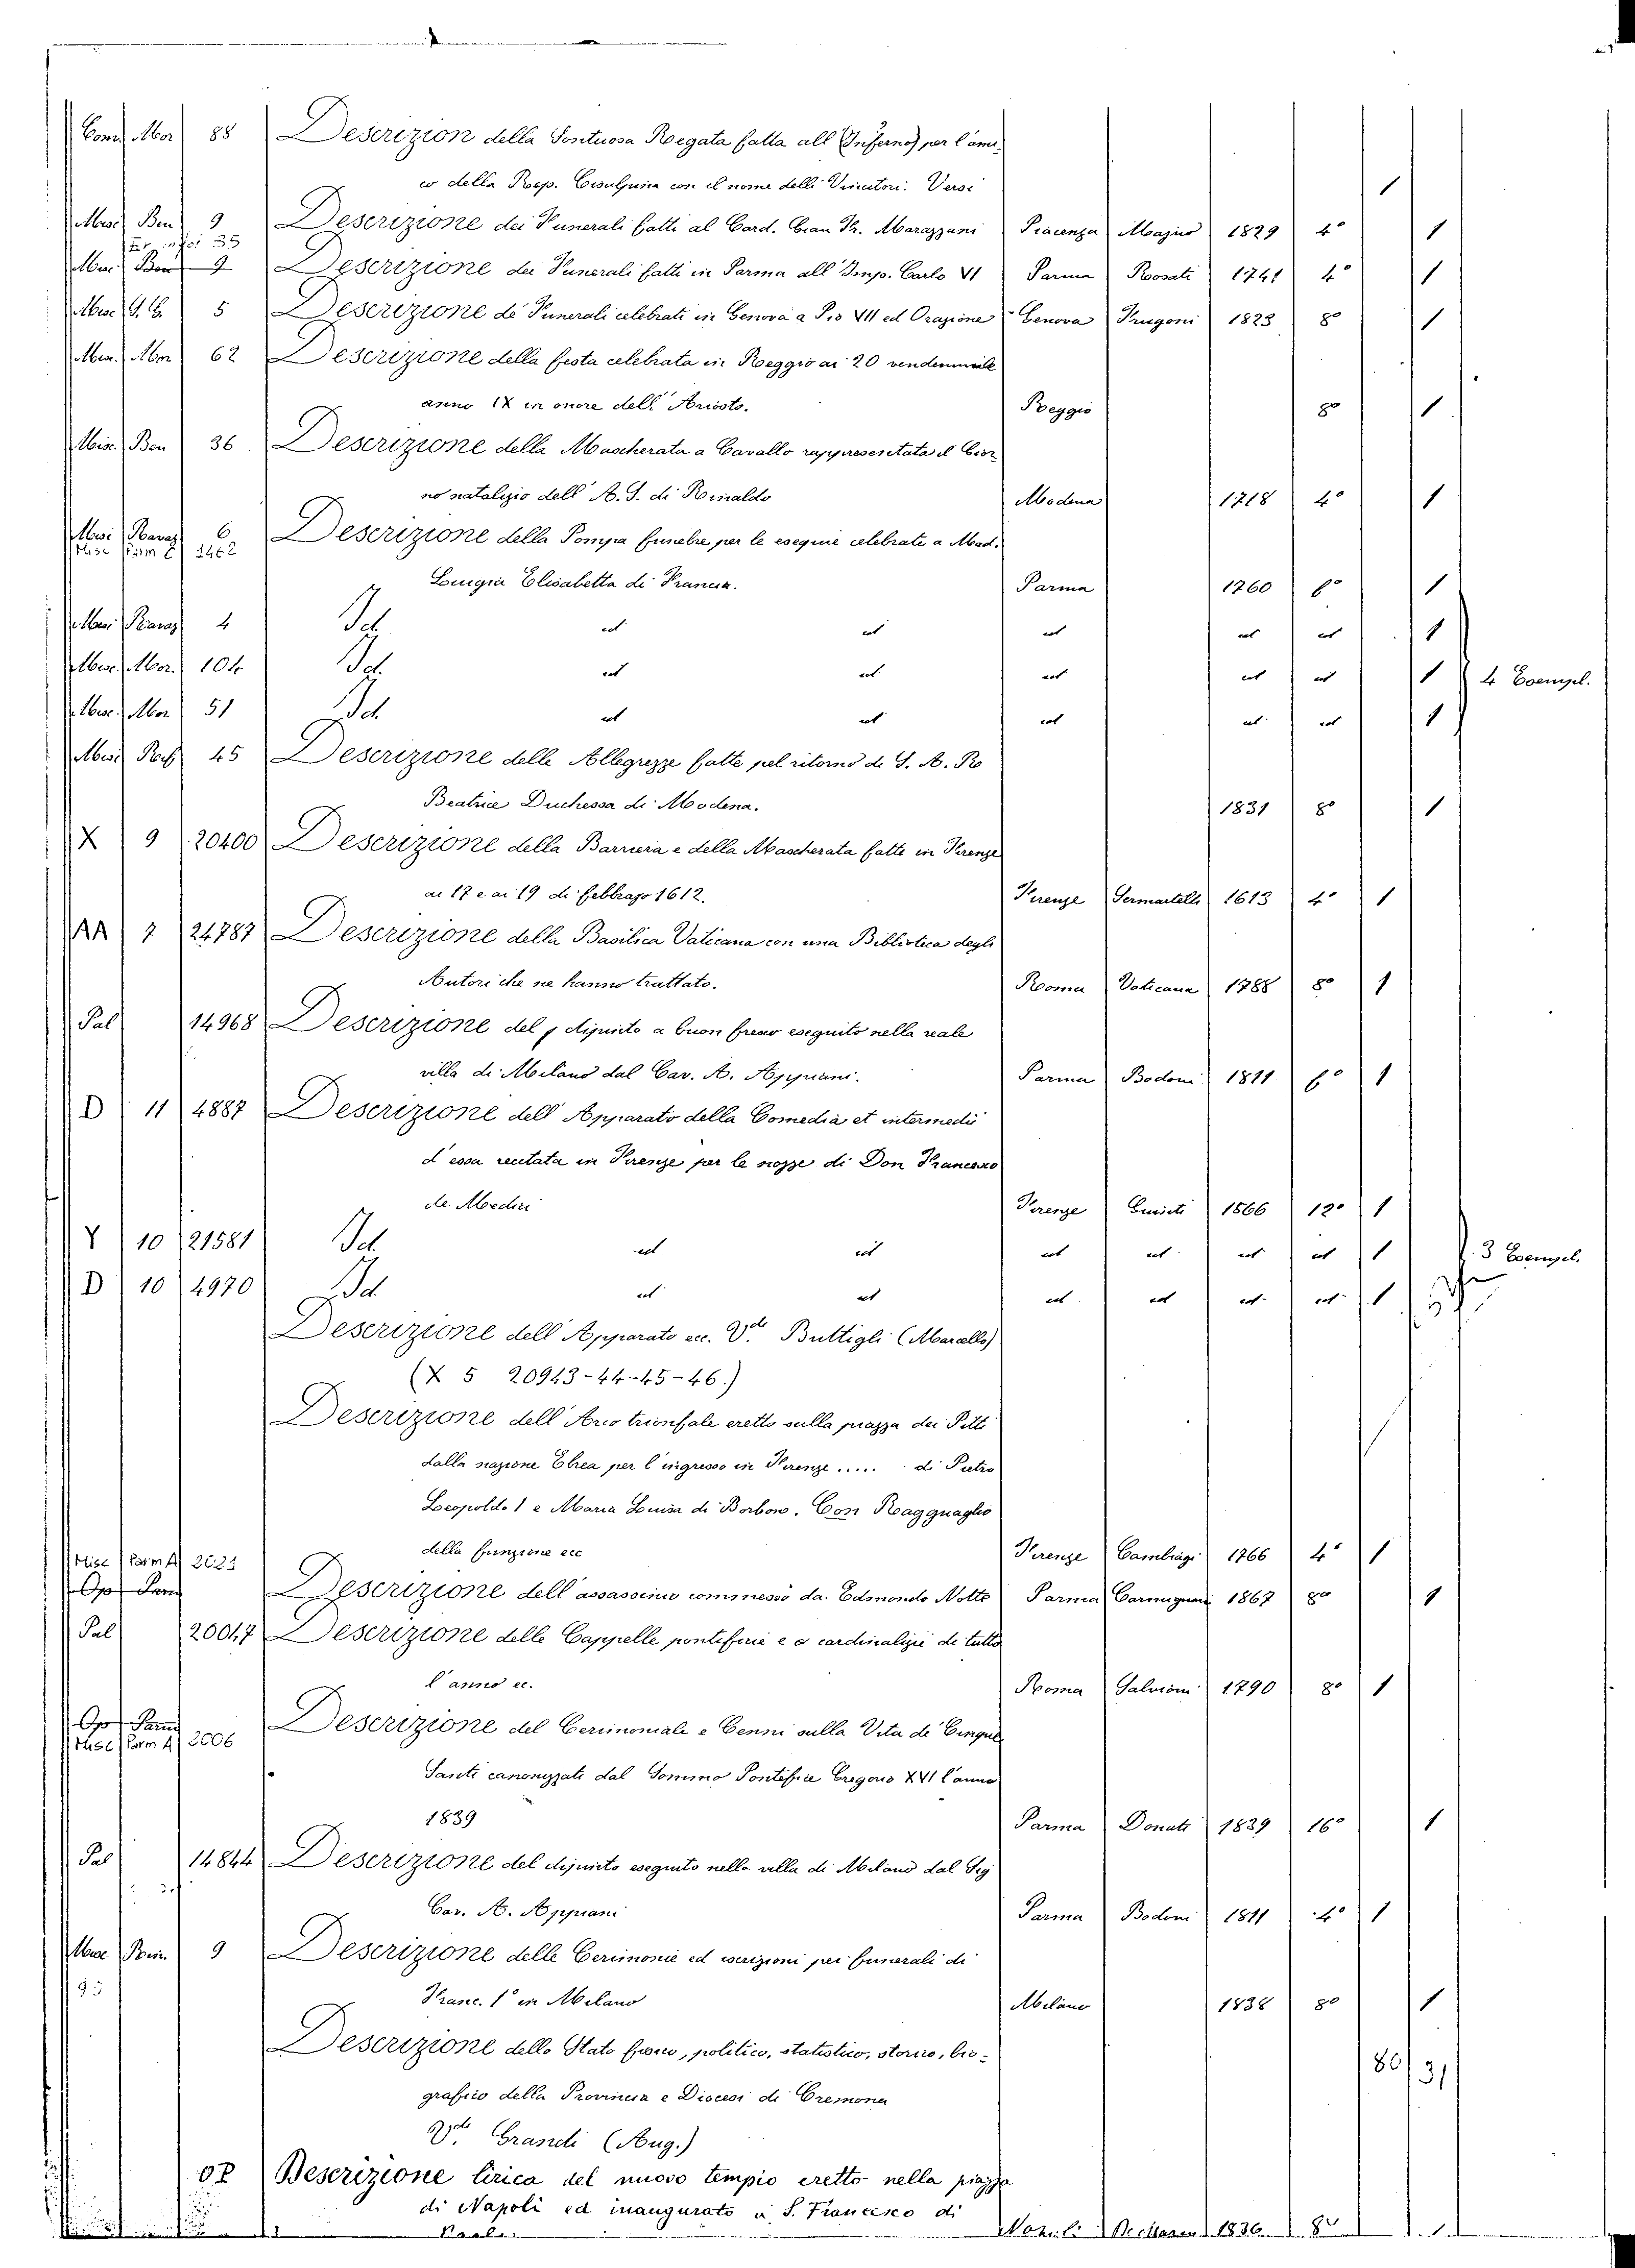 Misc Mor 88 Descrizion della Sontuosa Regata fatta all Inferno per l'ami
co della Rep. Cisalpina con il nome delli Vincitori. Versi 1
Misc Ben 9 Descrizione dei Funerali fatti al Card. Gian Fr. Marazzani Piacenza Majno 1829 4° 1
35
Misc Ben 9 Descrizione dei Funerali fatti in Parma all Imp. Carlo VI Parma Rosati 1741 4° 1
Misc 5 Descrizione de Funerali celebrati in Genova a Pio VII ed Orazione Genova Frugoni 1823 8° 1
Misc. Mor 62 Descrizione della festa celebrata in Reggio ai 20 vendemmiale
anno IX in onore dell' Ariosto. Reggio 8° 1
Misc. Ben 36 Descrizione della Mascherata a Cavallo rappresentata il Gior
no natalizio dell A. S. di Rinaldo Modena 1718 4° 1
Misc Ravaz 6 Descrizione della Pompa funebre per le esequie celebrate a Mad.
Misc Parm 1462
Luigia Elisabetta di Francia. Parma 1760 f° 1
Misc Ravaz 4 Id id id id id id 1
Misc. Mor. 104 Id. id id id id id 1 4 Esempl.
Misc. Mor 51 Id id id id id id 1
Misc 45 Descrizione delle Allegrezze fatte pel ritorno di S. A. R
Beatrice Duchessa di Modena. 1831 8° 1
X 9 20400 Descrizione della Barriera e della Mascherata fatte in Firenze
ai 17 e ai 19 di febbrajo 1612. Firenze Sermartelli 1613 4° 1
AA 7 24787 Descrizione della Basilica Vaticana con una Biblioteca degli
Autori che ne hanno trattato. Roma Vaticana 1788 8° 1
Pal 14968 Descrizione del dipinto a buon fresco eseguito nella reale
villa di Milano dal Cav. A. Appiani. Parma Bodoni 1811 f° 1
D 11 4887 Descrizione dell Apparato della Comedia et intermedii
d'essa recitata in Firenze per le nozze di Don Francesco
de Medici Firenze Giunti 1566 12° 1
Y 10 21581 Id id id id id id id 1 3 Esempl.
D 10 4970 Id id id id id id id 1
Descrizione dell Apparato ecc. V.di Buttigli (Marcello)
(X 5 20943-44-45-46.)
Descrizione dell Arco trionfale eretto sulla piazza dei Pitti
dalla nazione Ebrea per l'ingresso in Firenze ..... di Pietro
Leopoldo I e Maria Luisa di Borbone. Con Ragguaglio
della funzione ecc Firenze Cambiagi 1766 4° 1
Misc Parm 2021
Op Parm Descrizione dell'assassinio commesso da Edmondo Notte Parma Carmignani 1867 8° 1
Pal 20017 Descrizione delle Cappelle pontificie e cardinalizie di tutto
l'anno ec. Roma Salvioni 1790 8° 1
Op Parm Descrizione del Cerimoniale e Cenni sulla Vita di Cinque
Misc Parm 2006
Santi canonizzati dal Sommo Pontefice Gregorio XVI l'anno
1839 Parma Donati 1839 16° 1
Pal 14844 Descrizione del dipinto eseguito nella villa di Milano dal Sig
Cav. A. Appiani Parma Bodoni 1811 4° 1
Misc 9 Descrizione delle Cerimonie ed iscrizioni pei funerali di
93 Franc. I° in Milano Milano 1838 8° 1
Descrizione dello Stato fisico, politico, statistico, storico, bio-
grafico della Provincia e Diocesi di Cremona 80/31
V.di Grandi (Aug.)
Descrizione lirica del nuovo tempio eretto nella piazza
di Napoli ed inaugurato a S. Francesco di
Paola Napoli 1836 8° 1